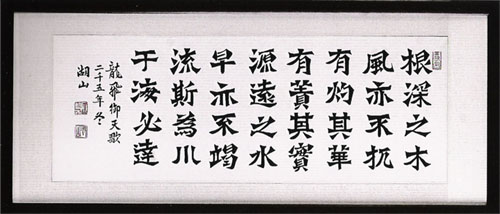 根深之木
風亦不扤
有灼其華
有蕡其實
源遠之水
旱亦不竭
流斯為川
于海必達
龍飛御天歌
二千五年冬
湖山